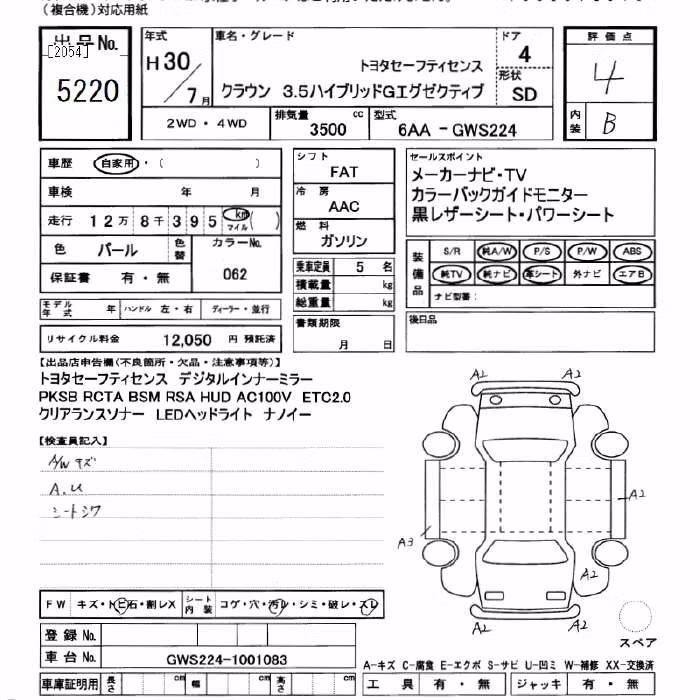 (複合機)対応用紙
出品No.
[2054]
5220
年式
H30/7月
車名・グレード
トヨタセーフティセンス
クラウン 3.5ハイブリッドGエグゼクティブ
ドア
4
形状
SD
評価点
4
内装
B
2WD・4WD
排気量
3500
cc
型式
6AA -GWS224
車歴
自家用・( )
車検
年 月
走行
12万8千395
km
マイル
( )
色
パール
色替
カラーNo.
062
保証書 有・無
モデル年式
年
ハンドル 左・右
ディーラー・並行
リサイクル料金 12,050 円 預託済
シフト
FAT
冷房
AAC
燃料
ガソリン
乗車定員 5 名
積載量 kg
総重量 kg
書類期限
月 日
セールスポイント
メーカーナビ・TV
カラーバックガイドモニター
黒レザーシート・パワーシート
装備品
S/R 純A/W P/S P/W ABS
純TV 純ナビ 革シート 外ナビ エアB
ナビ型番:
後日品
【出品店申告欄(不良箇所・欠品・注意事項等)】
トヨタセーフティセンス デジタルインナーミラー
PKSB RCTA BSM RSA HUD AC100V ETC2.0
クリアランスソナー LEDヘッドライト ナノイー
【検査員記入】
A/Wキズ
A.U
シートシワ
A2
A2
A2
A3
A2
A2
A2
スペア
FW キズ・トビ石・割レX
シート内装
コゲ・穴・汚レ・シミ・破レ・スレ
登録No.
車台No.
GWS224-1001083
車庫証明用
長さ
cm
幅
cm
高さ
cm
A-キズ C-腐食 E-エクボ S-サビ U-凹ミ W-補修 XX-交換済
工具 有・無
ジャッキ 有・無